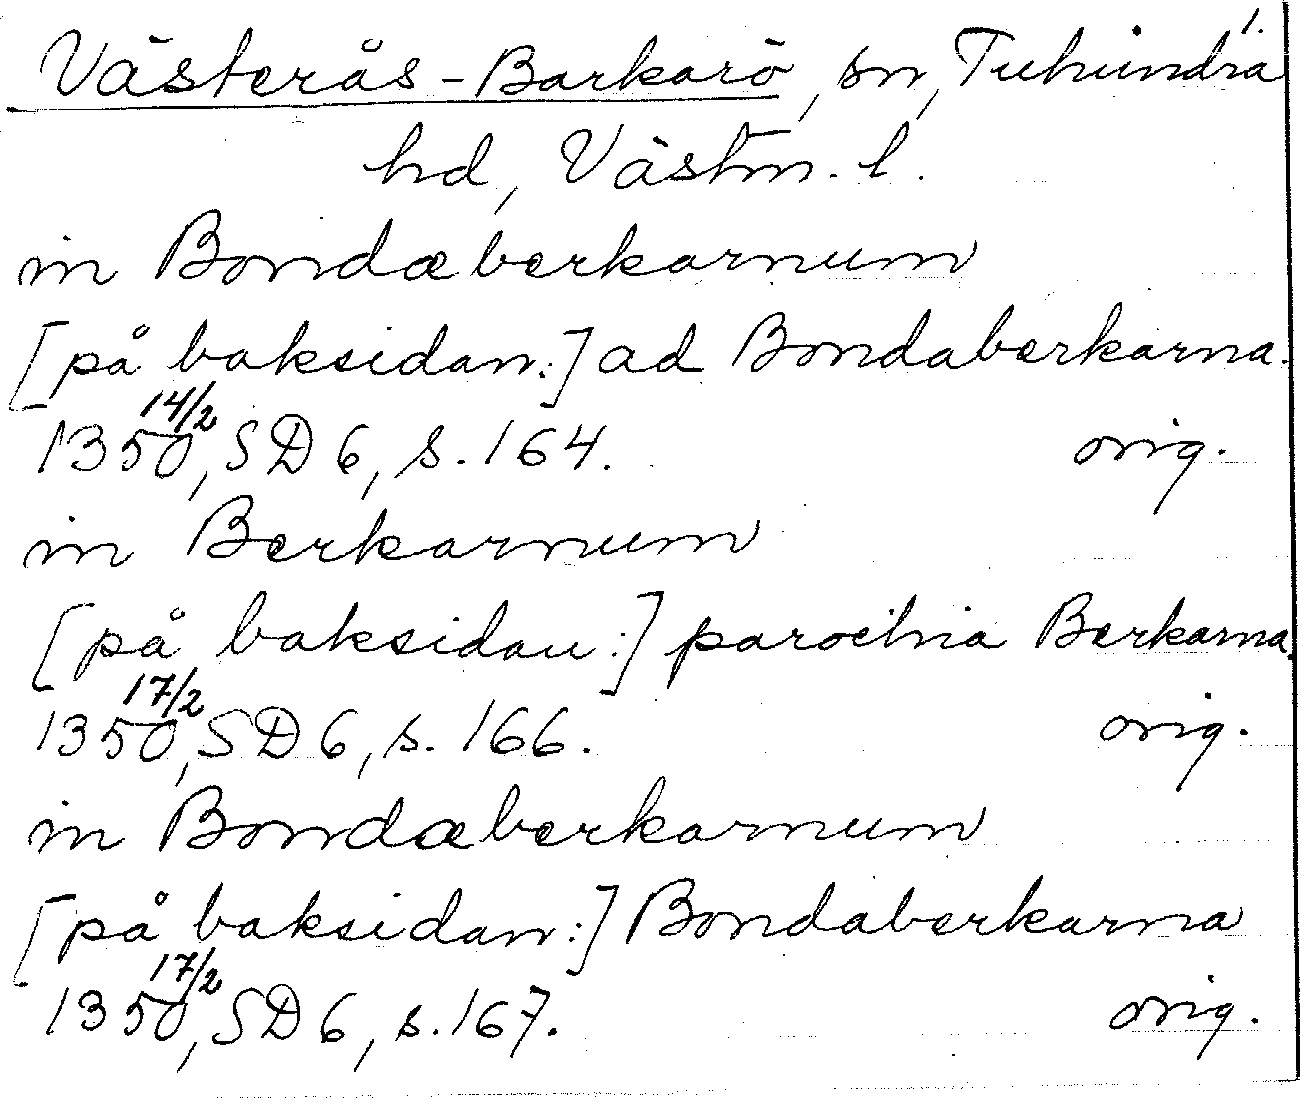 1.
Västerås-Barkarö, sn, Tuhundra
hd, Västm. l.
in Bondæberkarnum
[på baksidan:] ad Bondaberkarna.
1350 14/2, SD 6, s. 164. orig.
in Berkarnum
[på baksidan:] parochia Berkarna.
1350 17/2, SD 6, s. 166. orig.
in Bondæberkarnum
[på baksidan:] Bondaberkarna
1350 17/2, SD 6, s. 167. orig.